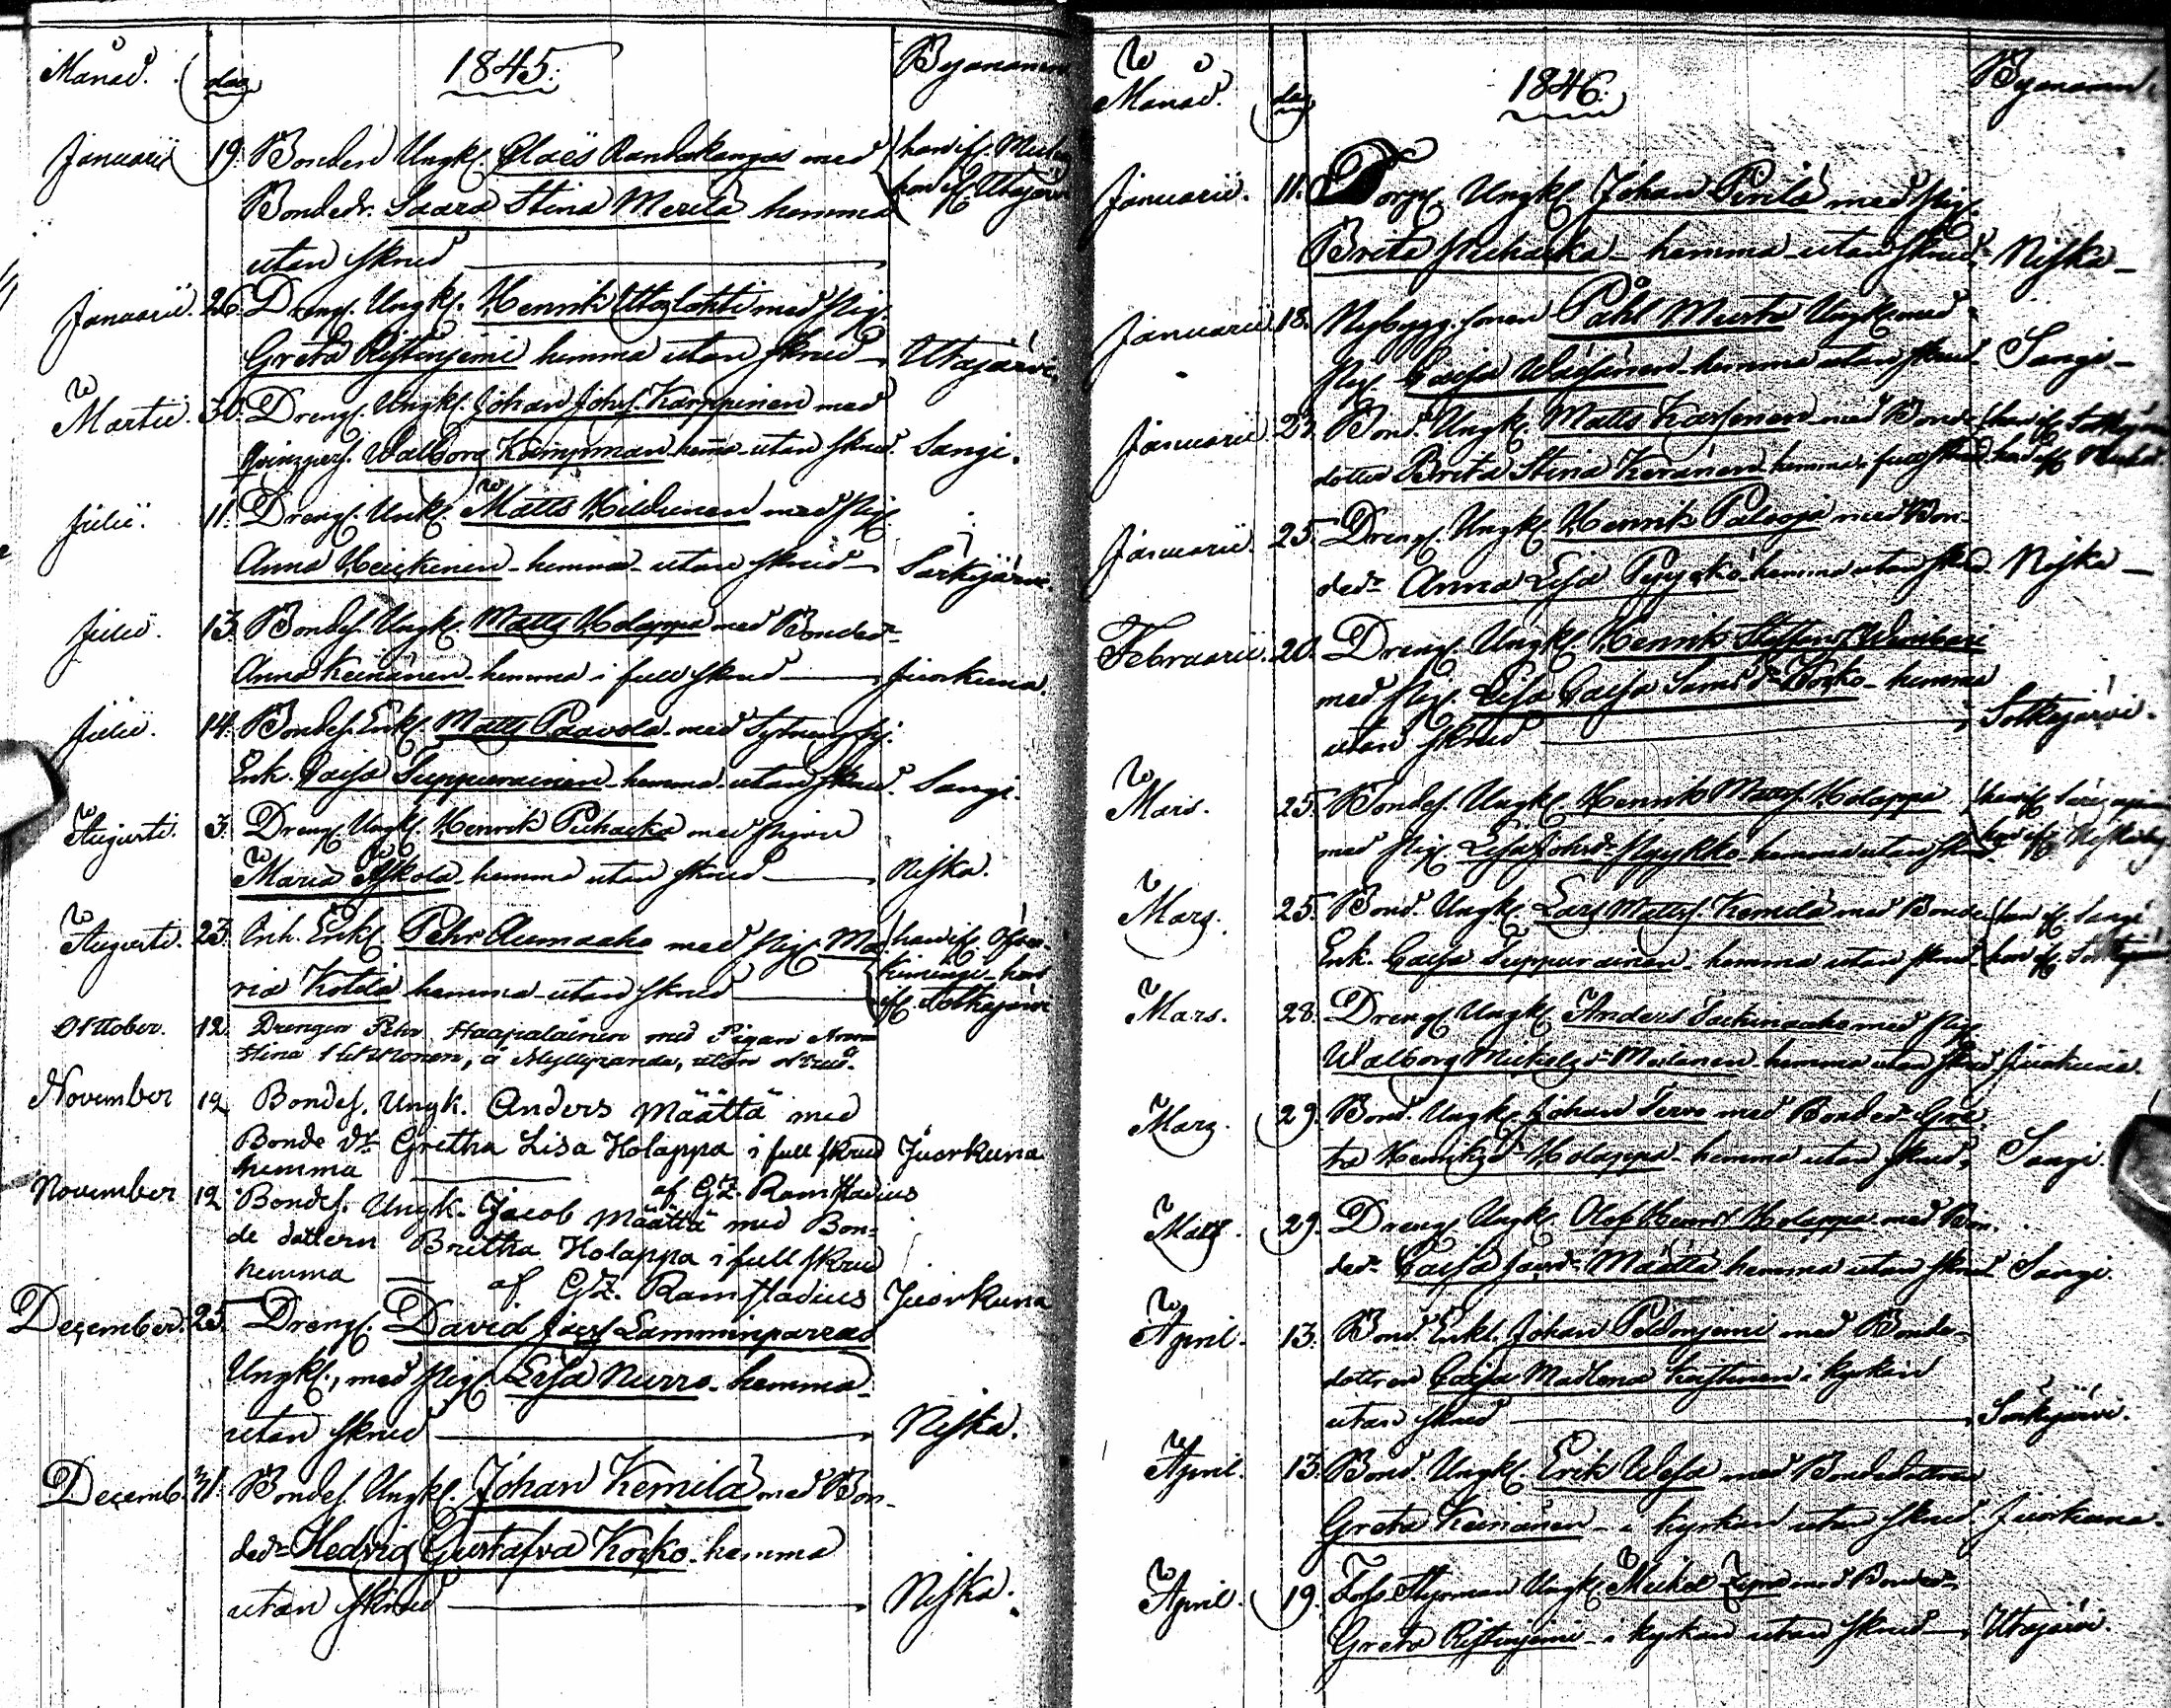 Månad.
dag
1845.
Bynamnen
Januarii
19.
Bonden Ungkl. Claës Randakangas med
han if.
Bondedr. Saara Stina Merilä hemma
hon if. Utajärvi
utan skrud
Januarii.
26.
Drengs. Ungkl. Henrik med Pig.
Greta Ristinjemi hemma utan skrud
Utajärvi.
Martii.
30.
Drengs. Ungkl. Johan Johss. Karppinen med
qvinspers. Walborg Kämpman hema utan skrud.
Sangi.
Julii.
11.
Drengs. Unkl. Matts Hildunen med Pig.
Anna Heickinen hemma utan skrud
Särkijärvi.
Julii.
13.
Bondes. Ungkl. Matts Holappa med Bondedr.
Anna Keinänen hemma i full skrud
Juorkuna.
Julii.
14.
Bondes. Enkl. Matts Paavola med
Enk. Caisa Tuppurainen hemma utan skrud.
Sangi.
Augusti.
3.
Drengs. Ungkl. Henrik Puhacka med Pigan
Maria Askola hemma utan skrud
Niska.
Augusti.
23.
Inh. Enkl. Pehr Aumaaho med Pig. Ma-
han if. Öfver-
ria Kotila hemma utan skrud
kiminge hon
if. Sotkajärvi
Oktober.
12.
Drengen Pehr Haapalainen med Pigan Anna
Stina, å Myllyranda, utan skrud.
November
12
Bondes. Ungk. Anders Määttä med
Bonde dr. Gretha Lisa Holappa i full skrud
Juorkuna
hemma
af GZ. Ramstadius
November
12
Bondes. Ungk. Jacob Määttä med Bon-
de dottern Britha Holappa i full skrud
hemma
af GZ. Ramstadius
Juorkuna
December.
25.
Drengs. David Jacs. Lamminparras
Ungkl., med Pig. Lisa Nurro hemma
utan skrud
Niska.
Decemb.
31.
Bondes. Ungkl. Johan Kemilä med Bon-
dedr. Hedvig Gustafva Kocko hemma
utan skrud
Niska.
Månad.
dag
1846.
Bynamn.
Januarii.
11.
Torps. Ungkl. Johan Pirilä med Pig.
Brita Puhacka hemma utan skrud
Niska
Januarii.
18.
Nybygg. sonen Påhl Musta Ungkl. med
Pig. Caisa Wäisänen hemma utan skrud
Sangi
Januarii.
Bond. Ungkl. Matts med Bonde-
dotter Brita Stina Keränen hemma i full skrud
Januarii.
25.
Drengs. Ungkl. Henrik Palooja med Bon-
dedr. Anna Lisa Pyyckö hemma utan skrud
Niska
Februarii.
20.
Drengs. Ungkl. Henrik
med Pig. Lisa Caisa Kocko hemma
utan skrud
Sotkajärvi.
Mars.
25.
Bondes. Ungkl. Henrik Matts. Holappa
med Pig. Lisa Johsdr. Pyykkö hemma utan skrud
Mars.
25.
Bond. Ungkl. Lars Mattss. Kemilä med Bonde
han if. Sangi
Enk. Caisa Tuppurainen hemma utan skrud
hon if.
Mars.
28.
Drengs. Ungkl. Anders med Pig.
Walborg Mickelsdr. hemma utan skrud
Juorkuna.
Mars.
29.
Bond. Ungkl. Johan Tervo med Bondedr. Gre-
ta Henriksdr. Holappa hemma utan skrud,
Sangi.
Mars.
29.
Drengs. Ungkl. Olof Henrs. Holappa med Bon-
dedr. Caisa Määttä hemma utan skrud
Sangi.
April.
13.
Bond. Enkl. Johan Poldonjemi med Bonde-
dottren Caisa Madlena i kyrkan
utan skrud
Särkijärvi.
April.
13.
Bond. Ungkl. Erik Wesa med Bondedottren
Greta Keinänen i kyrkan utan skrud
Juorkuna.
April.
19.
Fors Styrman Ungkl. Mickel med Bondedr.
Greta Ristinjemi i kyrkan utan skrud
Utajärvi.